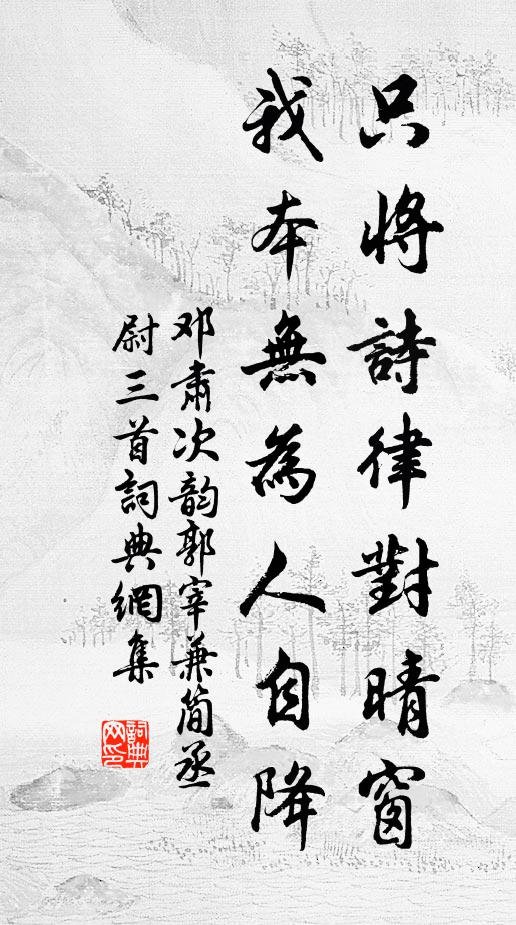 只將詩律對晴窗
我本無為人自降
邓肅次韵郭宰兼简丞
尉三首詞典網集
詞典网印